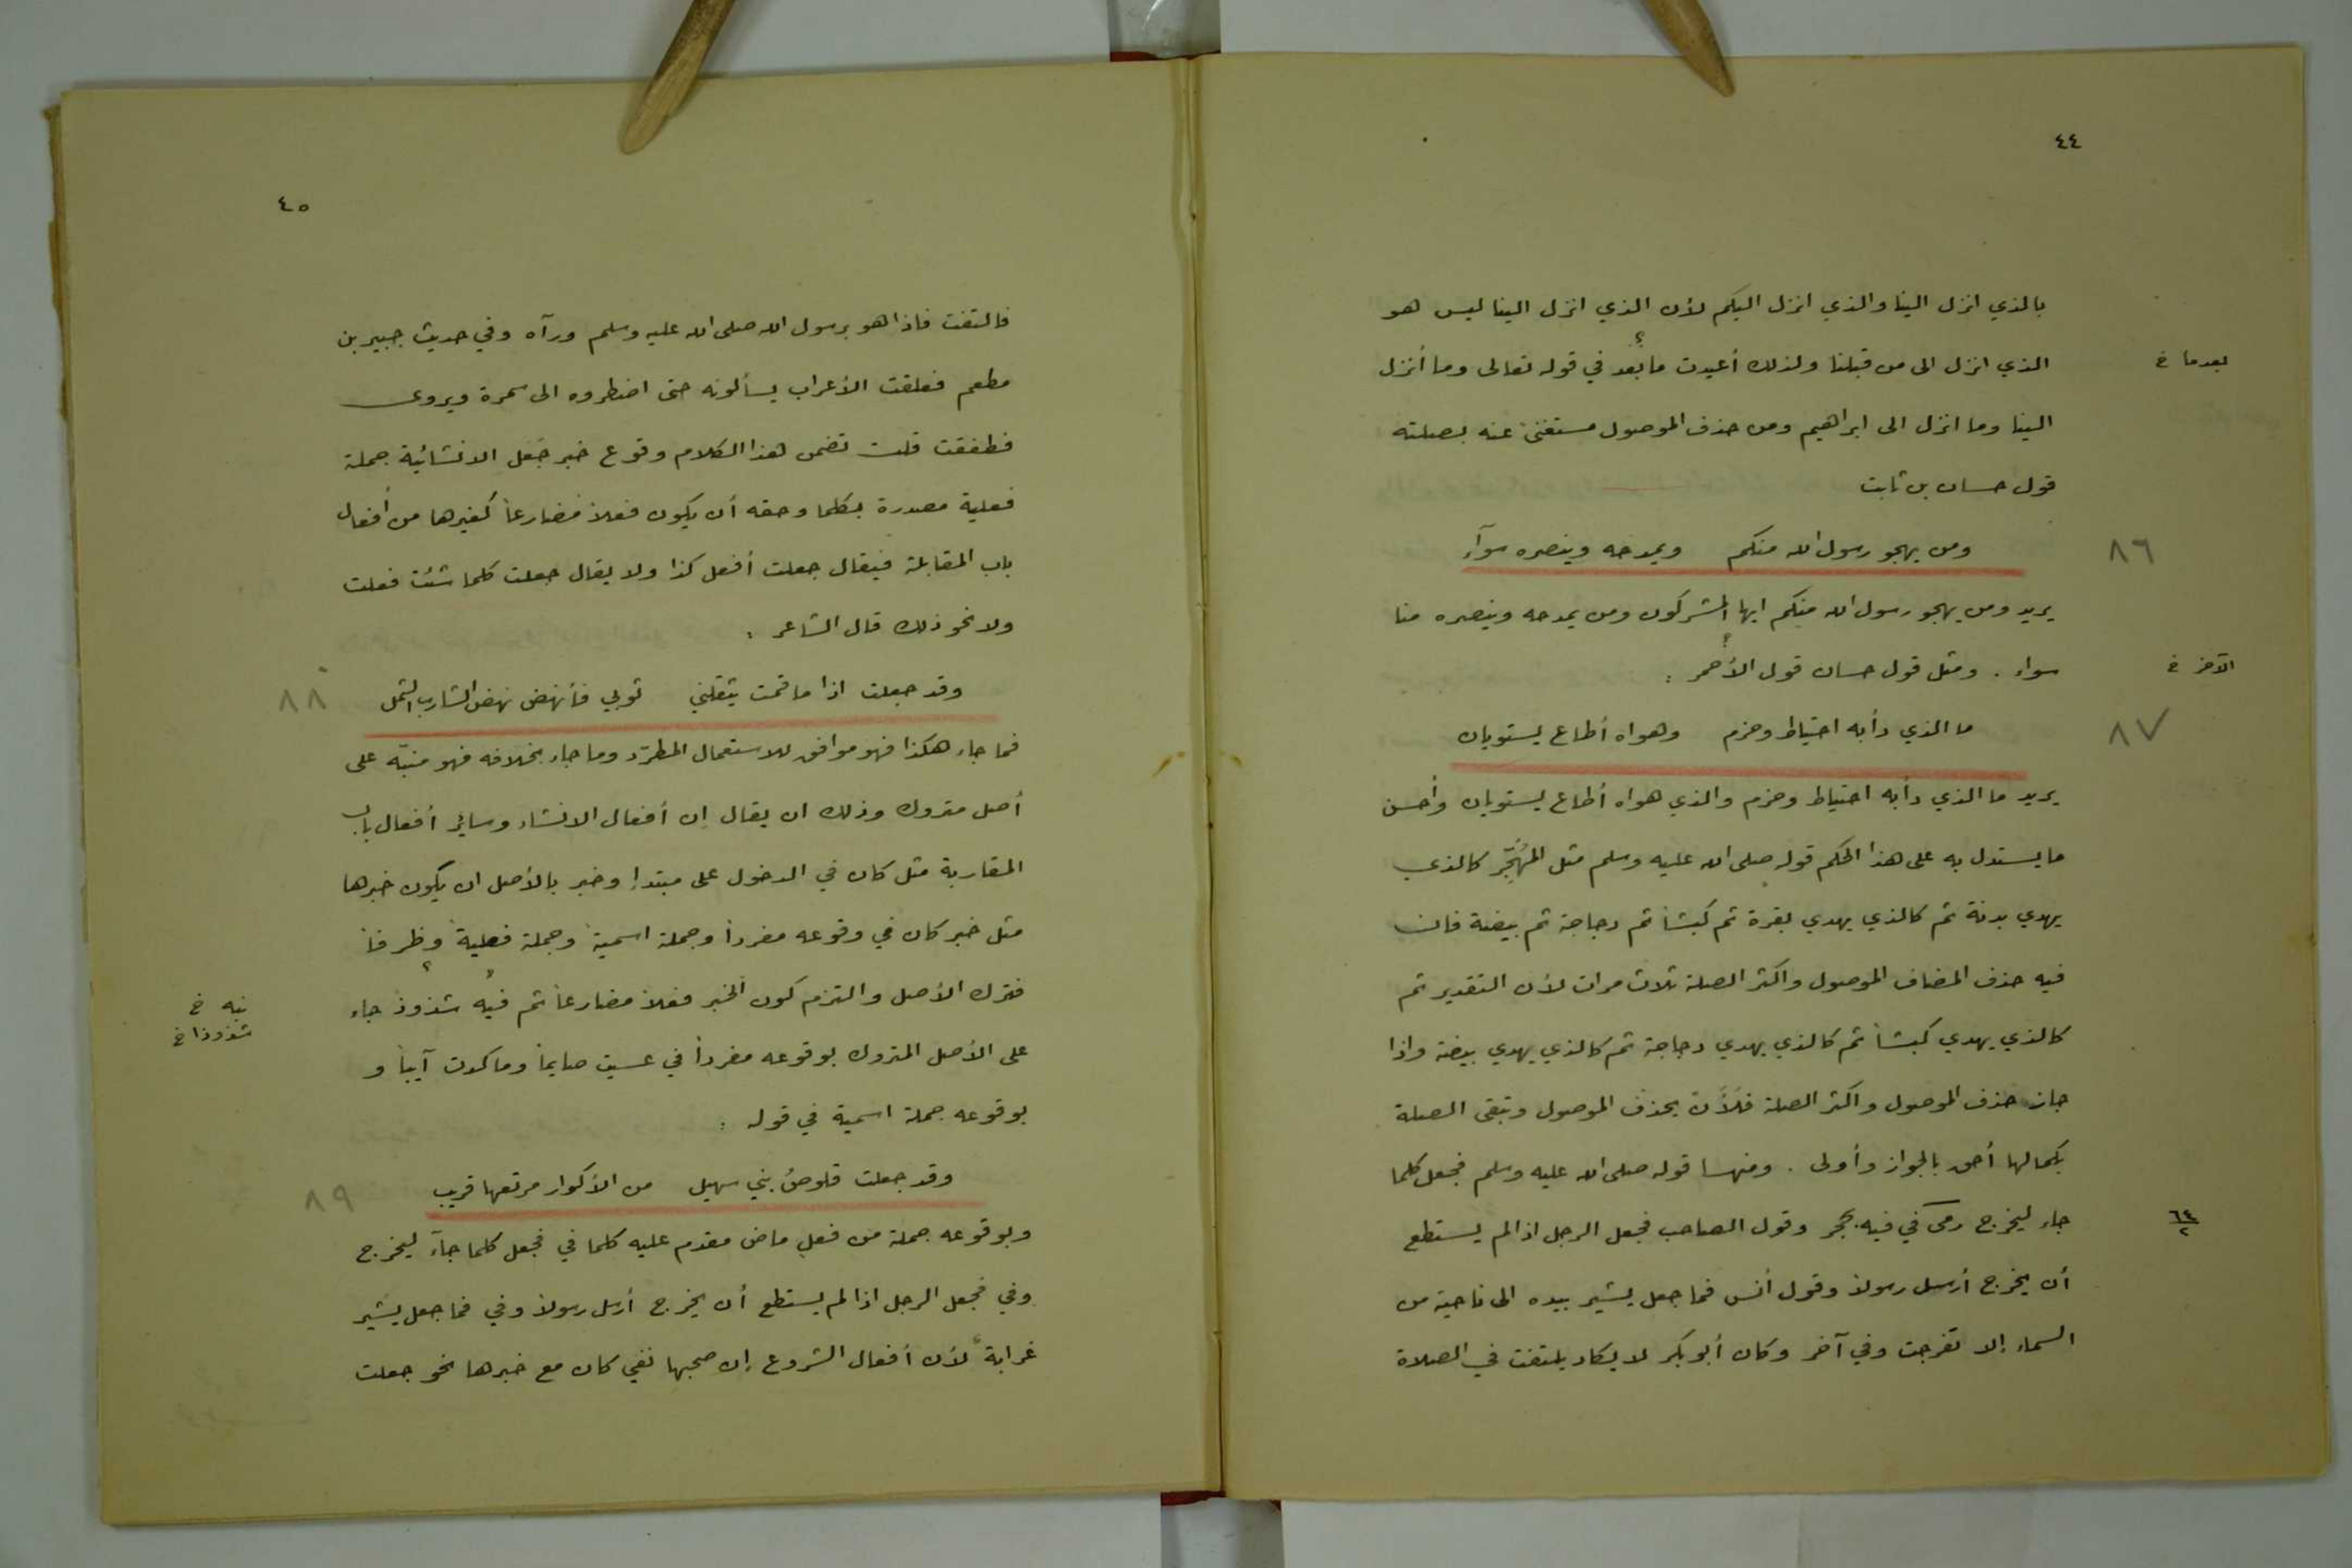 ٤٤
بالذي انزل الينا والذي انزل اليكم لأن الذي انزل الينا ليس هو
الذي انزل الى من قبلنا ولذلك أعيدت ما بعد في قوله تعالى وما أنزل
بعدما خ
الينا وما انزل الى ابراهيم ومن حذف الموصول مستغنىً عنه بصلته
قول حسان بن ثابت
ومن يهجو رسول الله منكم ويمدحه وينصره سوآء
٨٦
يريد ومن يهجو رسول الله منكم ايها المشركون ومن يمدحه وينصره منا
سواء . ومثل قول حسان قول الأحمر :
الآخر خ
ما الذي دأبه احتياط وحزم وهواه أطاع يستويان
٨٧
يريد ما الذي دأبه احتياط وحزم والذي هواه أطاع يستويان وأحسن
ما يستدل به على هذا الحكم قوله صلى الله عليه وسلم مثل المُهَجِّر كالذي
يهدي بدنة ثم كالذي يهدي بقرة ثم كبشاً ثم دجاجة ثم بيضة فان
فيه حذف المضاف الموصول واكثر الصلة ثلاث مرات لأن التقدير ثم
كالذي يهدي كبشاً ثم كالذي يهدي دجاجة ثم كالذي يهدي بيضة واذا
جاز حذف الموصول واكثر الصلة فلأَن يحذف الموصول وتبقى الصلة
بكمالها أحق بالجواز وأولى . ومنها قوله صلى الله عليه وسلم فجعل كلما
جاء ليخرج رمى في فيه بحجر وقول الصاحب فجعل الرجل اذا لم يستطع
٦٤/٢
أن يخرج أرسل رسولاً وقول أنس فما جعل يشير بيده الى ناحية من
السماء إلا تفرجت وفي آخر وكان أبو بكر لا يكاد يلتفت في الصلاة
٤٥
فالتفت فاذا هو برسول الله صلى الله عليه وسلم ورآه وفي حديث جبير بن
مطعم فعلقت الأعراب يسألونه حتى اضطروه الى سمرة ويروى
فطفقت قلت تضمن هذا الكلام وقوع خبر جَعَل الانشائية جملة
فعلية مصدرة بكلما وحقه أن يكون فعلاً مضارعاً كغيرها من أفعال
باب المقابلة فيقال جعلت أفعل كذا ولا يقال جعلت كلما شئت فعلت
ولا نحو ذلك قال الشاعر :
وقد جعلت اذا ما قمت يثقلني ثوبي فأنهض نهض الشارب الثمل
٨٨
فما جاء هكذا فهو موافق للاستعمال المطرّد وما جاء بخلافه فهو منبّه على
أصل متروك وذلك ان يقال إن أفعال الانشاء وسائر أفعال باب
المقاربة مثل كان في الدخول على مبتدإ وخبر بالأصل ان يكون خبرها
مثل خبر كان في وقوعه مفرداً وجملة اسمية وجملة فعلية وظرفاً
فترك الأصل والتزم كون الخبر فعلاً مضارعاً ثم فيه شذوذ جاء
نبه خ
شذوذا خ
على الأصل المتروك بوقوعه مفرداً في عسيت صايماً وما كدت آيباً و
بوقوعه جملة اسمية في قوله :
وقد جعلت قلوصُ بني سهيل من الأكوار مرتعها قريب
٨٩
وبوقوعه جملة من فعلٍ ماض مقدم عليه كلما في فجعل كلما جآء ليخرج
وفي فجعل الرجل اذا لم يستطع أن يخرج أرسل رسولاً وفي فما جعل يشير
غرابة لأن أفعال الشروع إن صحبها نفي كان مع خبرها نحو جعلت